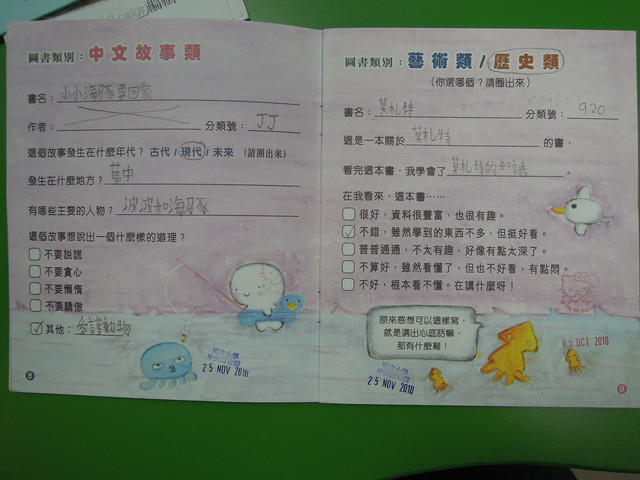 圖書類別：中文故事類
書名：小小海豚要回家
作者： 分類號：JJ
這個故事發生在什麼年代？ 古代/現代/未來 （請圈出來）
發生在什麼地方？
有哪些主要的人物？ 波波和海豚
這個故事想說出一個什麼樣的道理？
不要說謊
不要貪心
不要懶惰
不要驕傲
其他：愛護動物
25 NOV 2010
8
圖書類別：藝術類/歷史類
（你選哪個？請圈出來）
書名：莫札特 分類號：920
這是一本關於 莫札特 的書，
看完這本書，我學會了 莫札特的知識。
在我看來，這本書……
很好，資料很豐富，也很有趣。
不錯，雖然學到的東西不多，但挺好看。
普普通通，不太有趣，好像有點太深了。
不算好，雖然看懂了，但也不好看，有點悶。
不好，根本看不懂。在講什麼呀！
原來感想可以這樣寫，
就是講出心底話嘛，
那有什麼難！
05 OCT 2010
25 NOV 2010
9